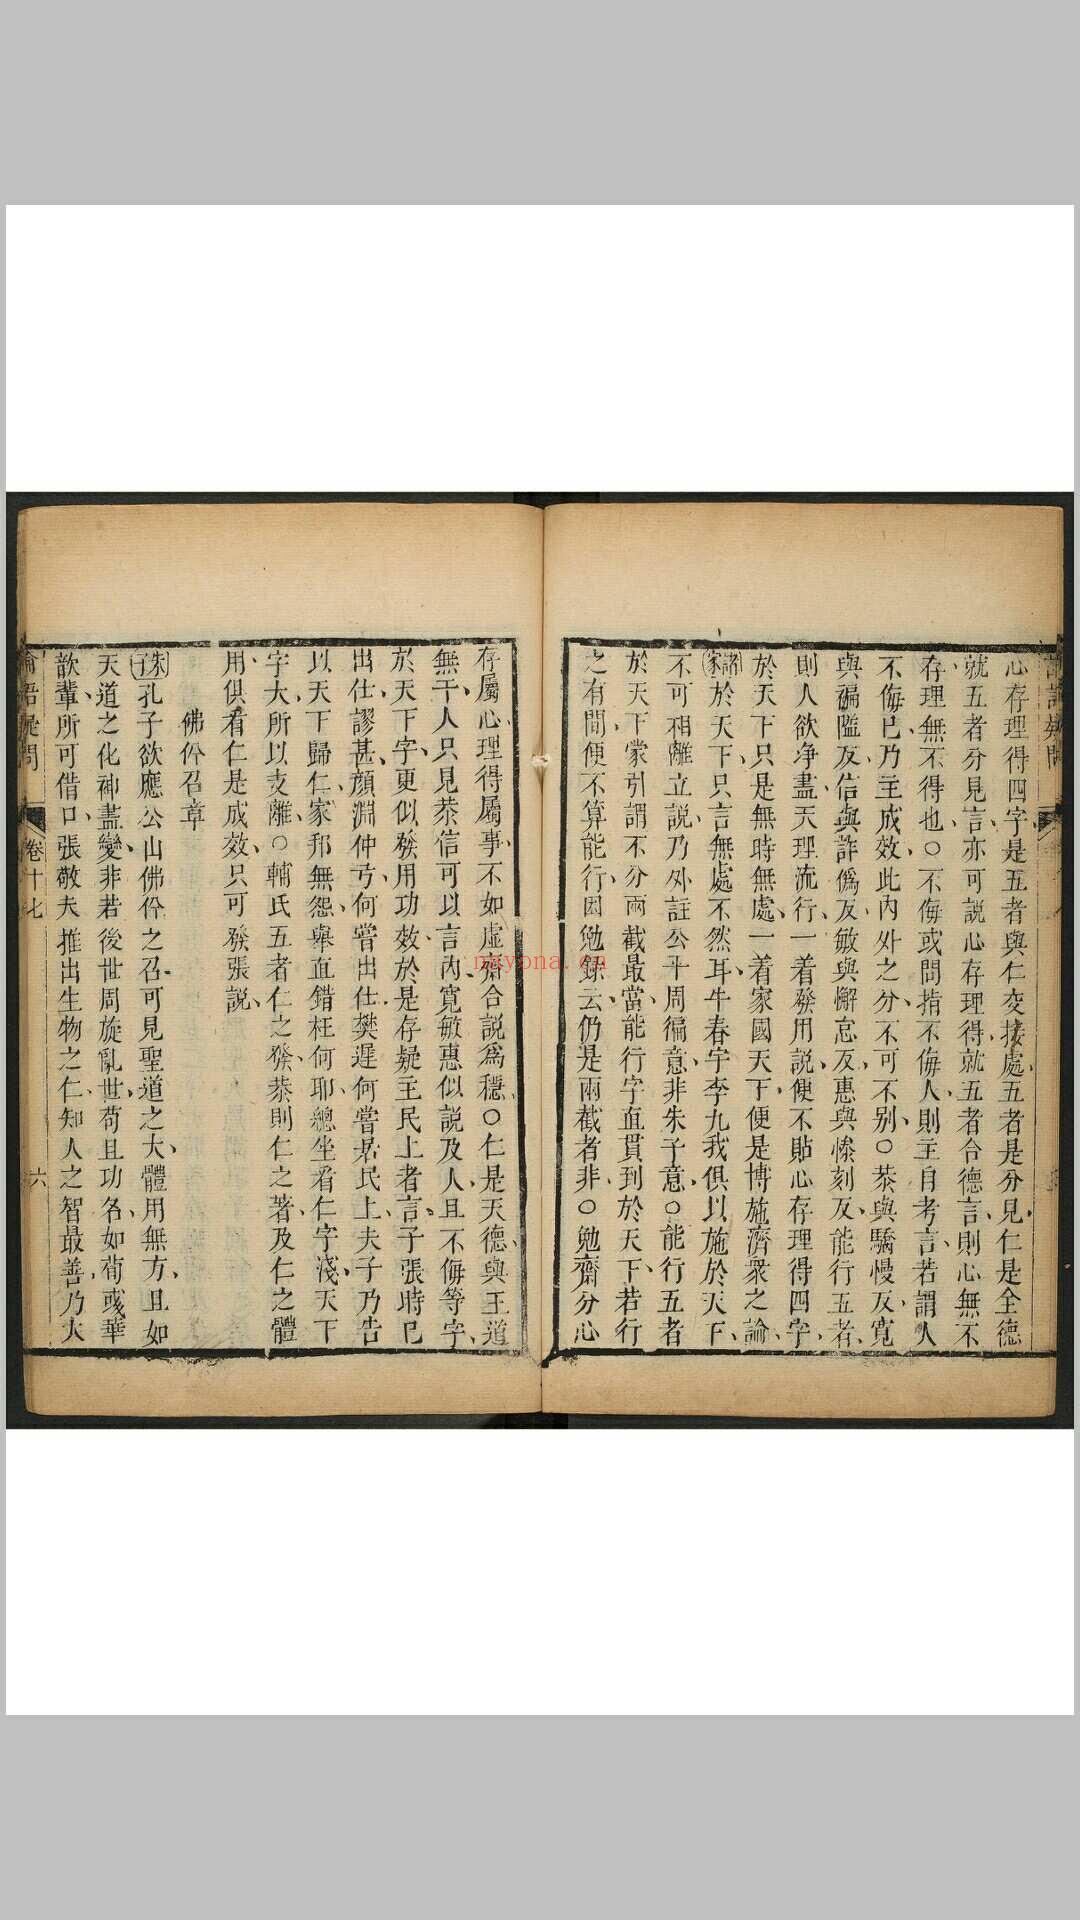 心存理得四字是五者與仁交接處五者是分見仁是全德
就五者分見言亦可說心存理得就五者合德言則心無不
存理無不得也○不侮或問指不侮人則主自考言若謂人
不侮已乃主成效此內外之分不可不别○恭與驕慢反寬
與褊隘反信與詐僞反敏與懈怠反惠與慘刻反能行五者
則人欲净盡天理流行一着發用說便不貼心存理得四字
於天下只是無時無處一着家國天下便是博施濟衆之論
諸家於天下只言無處不然耳牛春宇李九我俱以施於天下
不可相離立說乃外註公平周徧意非朱子意○能行五者
於天下蒙引謂不分兩截最當能行字直貫到於天下若行
之有間便不算能行因勉錄云仍是兩截者非○勉齋分心
存屬心理得屬事不如虛齋合說爲穩○仁是天德與王道
無干人只見恭信可以言內寬敏惠似說及人且不侮等字
於天下字更似發用功效於是存疑主民上者言子張時已
出仕謬甚顏淵仲弓何嘗出仕樊遲何嘗居民上夫子乃告
以天下歸仁家邦無怨舉直錯枉何耶總坐看仁字淺天下
字大所以支離○輔氏五者仁之發恭則仁之著及仁之體
用俱看仁是成效只可發張說
佛肸召章
朱子孔子欲應公山佛肸之召可見聖道之大體用無方且如
天道之化神盡變非若後世周旋亂世苟且功名如荀彧華
歆輩所可借口張敬夫推出生物之仁知人之智最善乃大
論語疑問
卷十七
六
nayona.cn